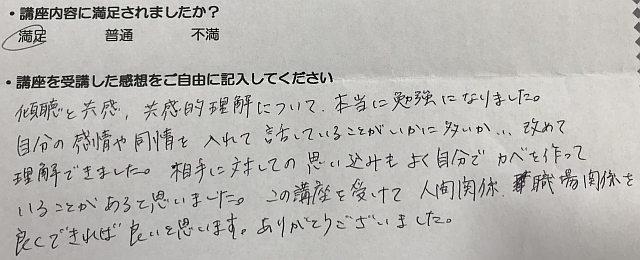 ・講座内容に満足されましたか？
満足　普通　不満
・講座を受講した感想をご自由に記入してください
傾聴と共感，共感的理解について、本当に勉強になりました。
自分の感情や同情を入れて話していることがいかに多いか…改めて
理解できました。相手に対しての思い込みもよく自分でカベを作って
いることがあると思いました。この講座を受けて人間関係、職場関係を
良くできれば良いと思います。ありがとうございました。